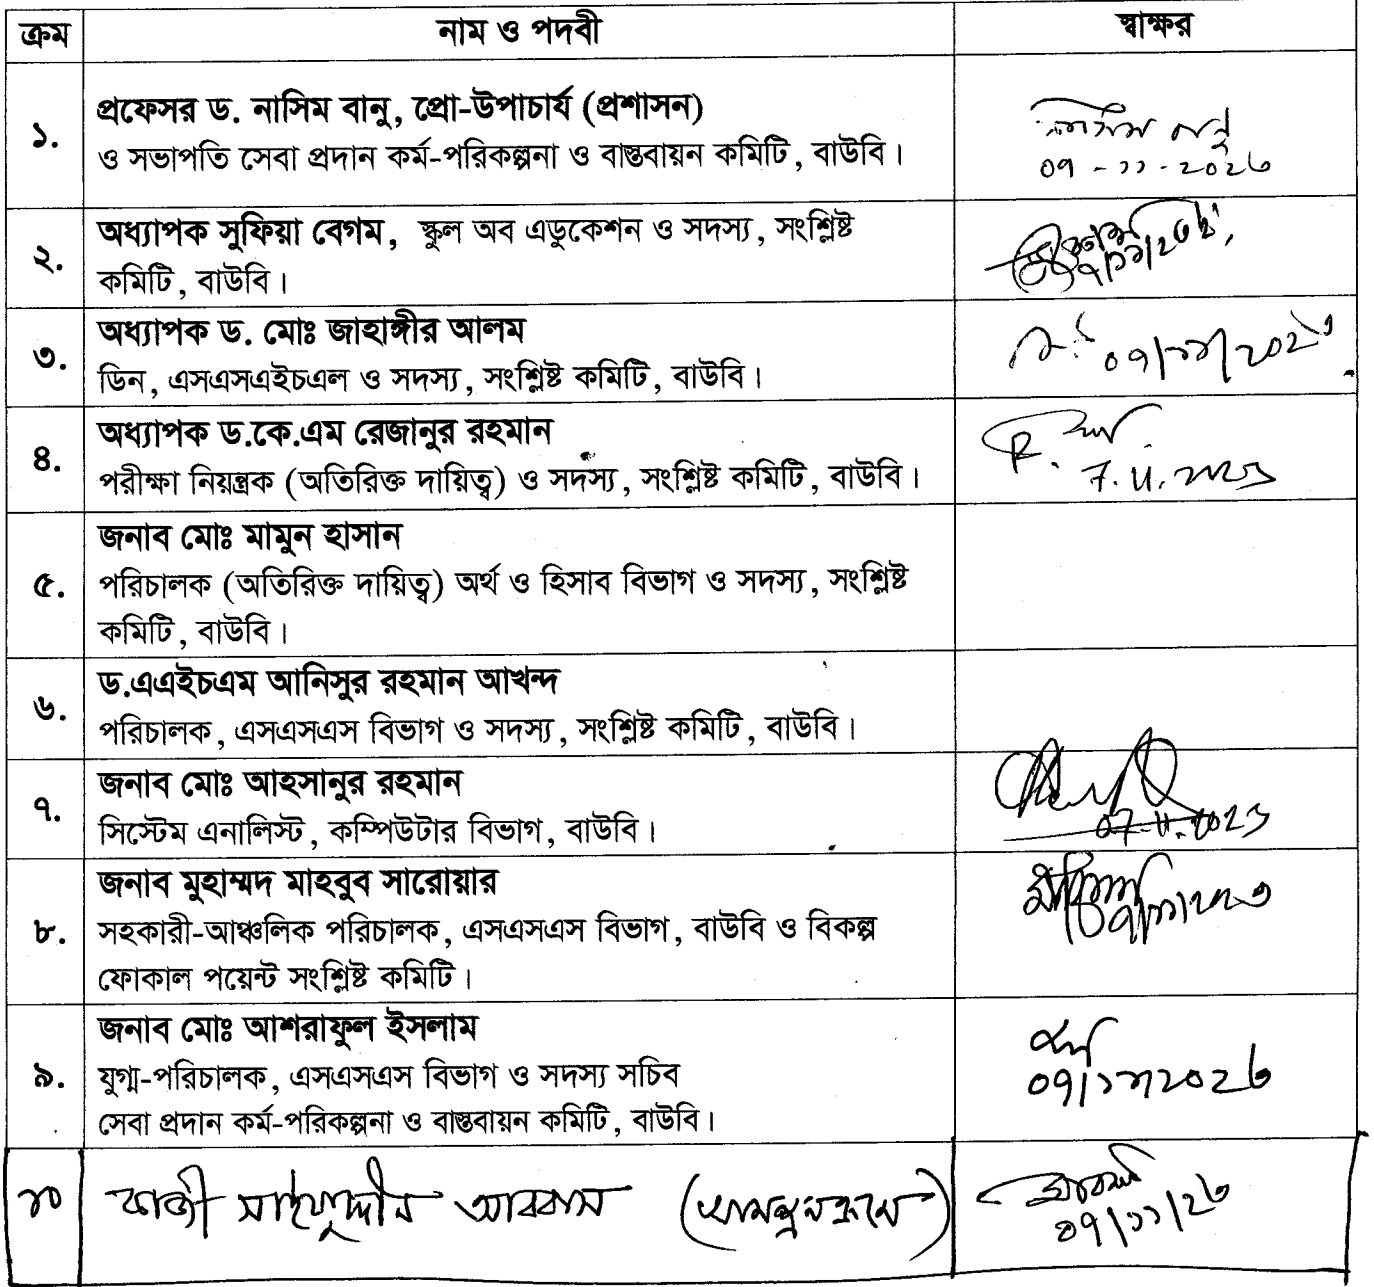 ক্রম নাম ও পদবী স্বাক্ষর
১. প্রফেসর ড. নাসিম বানু, প্রো-উপাচার্য (প্রশাসন)
ও সভাপতি সেবা প্রদান কর্ম-পরিকল্পনা ও বাস্তবায়ন কমিটি, বাউবি।
নাসিম বানু
০৭-১১-২০২৩
২. অধ্যাপক সুফিয়া বেগম, স্কুল অব এডুকেশন ও সদস্য, সংশ্লিষ্ট
কমিটি, বাউবি।
৩. অধ্যাপক ড. মোঃ জাহাঙ্গীর আলম
ডিন, এসএসএইচএল ও সদস্য, সংশ্লিষ্ট কমিটি, বাউবি।
০৭/১১/২০২৩
৪. অধ্যাপক ড.কে.এম রেজানুর রহমান
পরীক্ষা নিয়ন্ত্রক (অতিরিক্ত দায়িত্ব) ও সদস্য, সংশ্লিষ্ট কমিটি, বাউবি।
7.11.2023
৫. জনাব মোঃ মামুন হাসান
পরিচালক (অতিরিক্ত দায়িত্ব) অর্থ ও হিসাব বিভাগ ও সদস্য, সংশ্লিষ্ট
কমিটি, বাউবি।
৬. ড.এএইচএম আনিসুর রহমান আখন্দ
পরিচালক, এসএসএস বিভাগ ও সদস্য, সংশ্লিষ্ট কমিটি, বাউবি।
৭. জনাব মোঃ আহসানুর রহমান
সিস্টেম এনালিস্ট, কম্পিউটার বিভাগ, বাউবি।
07.11.2023
৮. জনাব মুহাম্মদ মাহবুব সারোয়ার
সহকারী-আঞ্চলিক পরিচালক, এসএসএস বিভাগ, বাউবি ও বিকল্প
ফোকাল পয়েন্ট সংশ্লিষ্ট কমিটি।
০৭/১১/২০২৩
৯. জনাব মোঃ আশরাফুল ইসলাম
যুগ্ম-পরিচালক, এসএসএস বিভাগ ও সদস্য সচিব
সেবা প্রদান কর্ম-পরিকল্পনা ও বাস্তবায়ন কমিটি, বাউবি।
০৭/১১/২০২৩
১০ কাজী সাইফুদ্দীন আববাস (আমন্ত্রনক্রমে)
০৭/১১/২৩